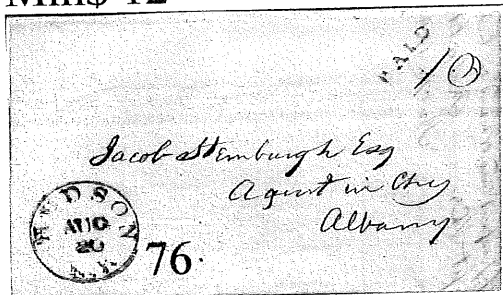 Min$ 12
PAID
10
Jacob Stemburgh Esq
Agent in Chy
Albany
HUDSON
AUG
20
N.Y.
76.